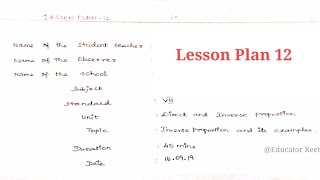 LESSON PLAN-12
Lesson Plan 12
Name of the Student teacher :
Name of the Observer :
Name of the School :
Subject :
Standard : VII
Unit : Direct and Inverse Proportion
Topic : Inverse Proportion and its examples.
Duration : 45 mins
@Educator Keet
Date : 16.09.19